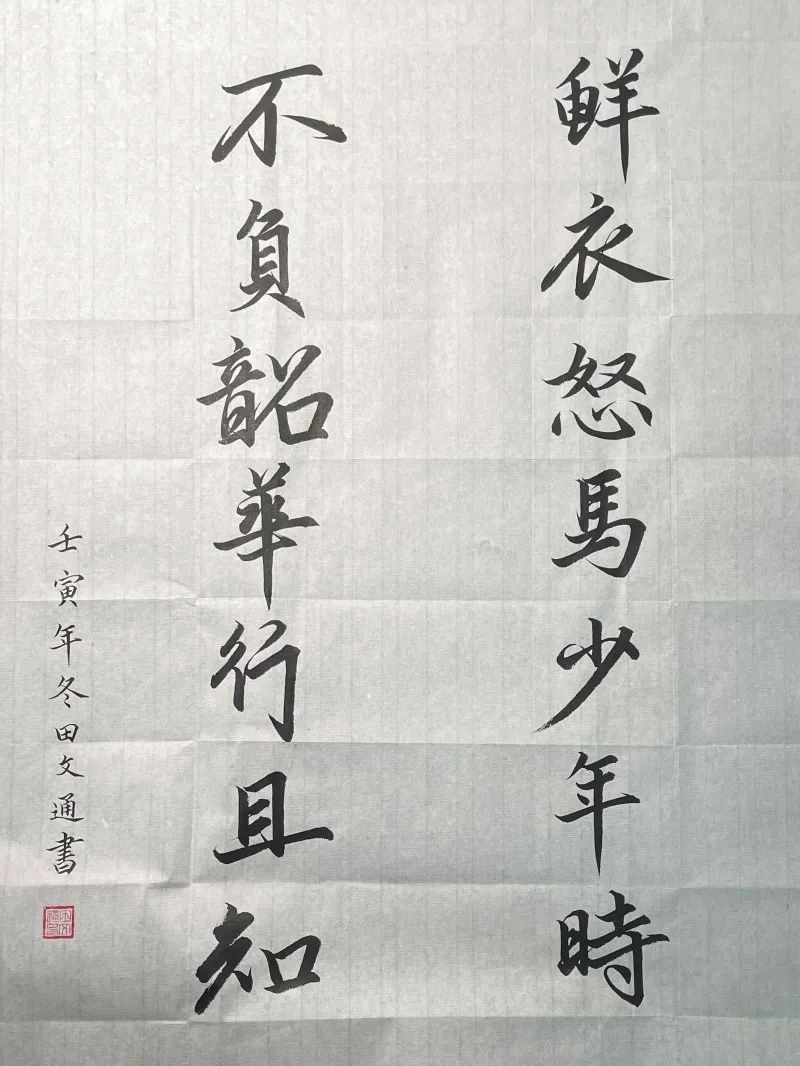 鮮衣怒馬少年時
不負韶華行且知
壬寅年冬田文通書